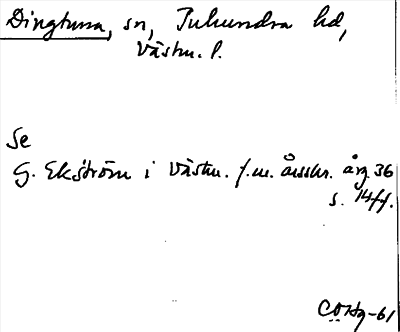 Dingtuna, sn, Tuhundra hd,
Västm. l.
Se
G. Ekström i Västm. f.m. årsskr. årg. 36
s. 14ff.
CÖHg-61